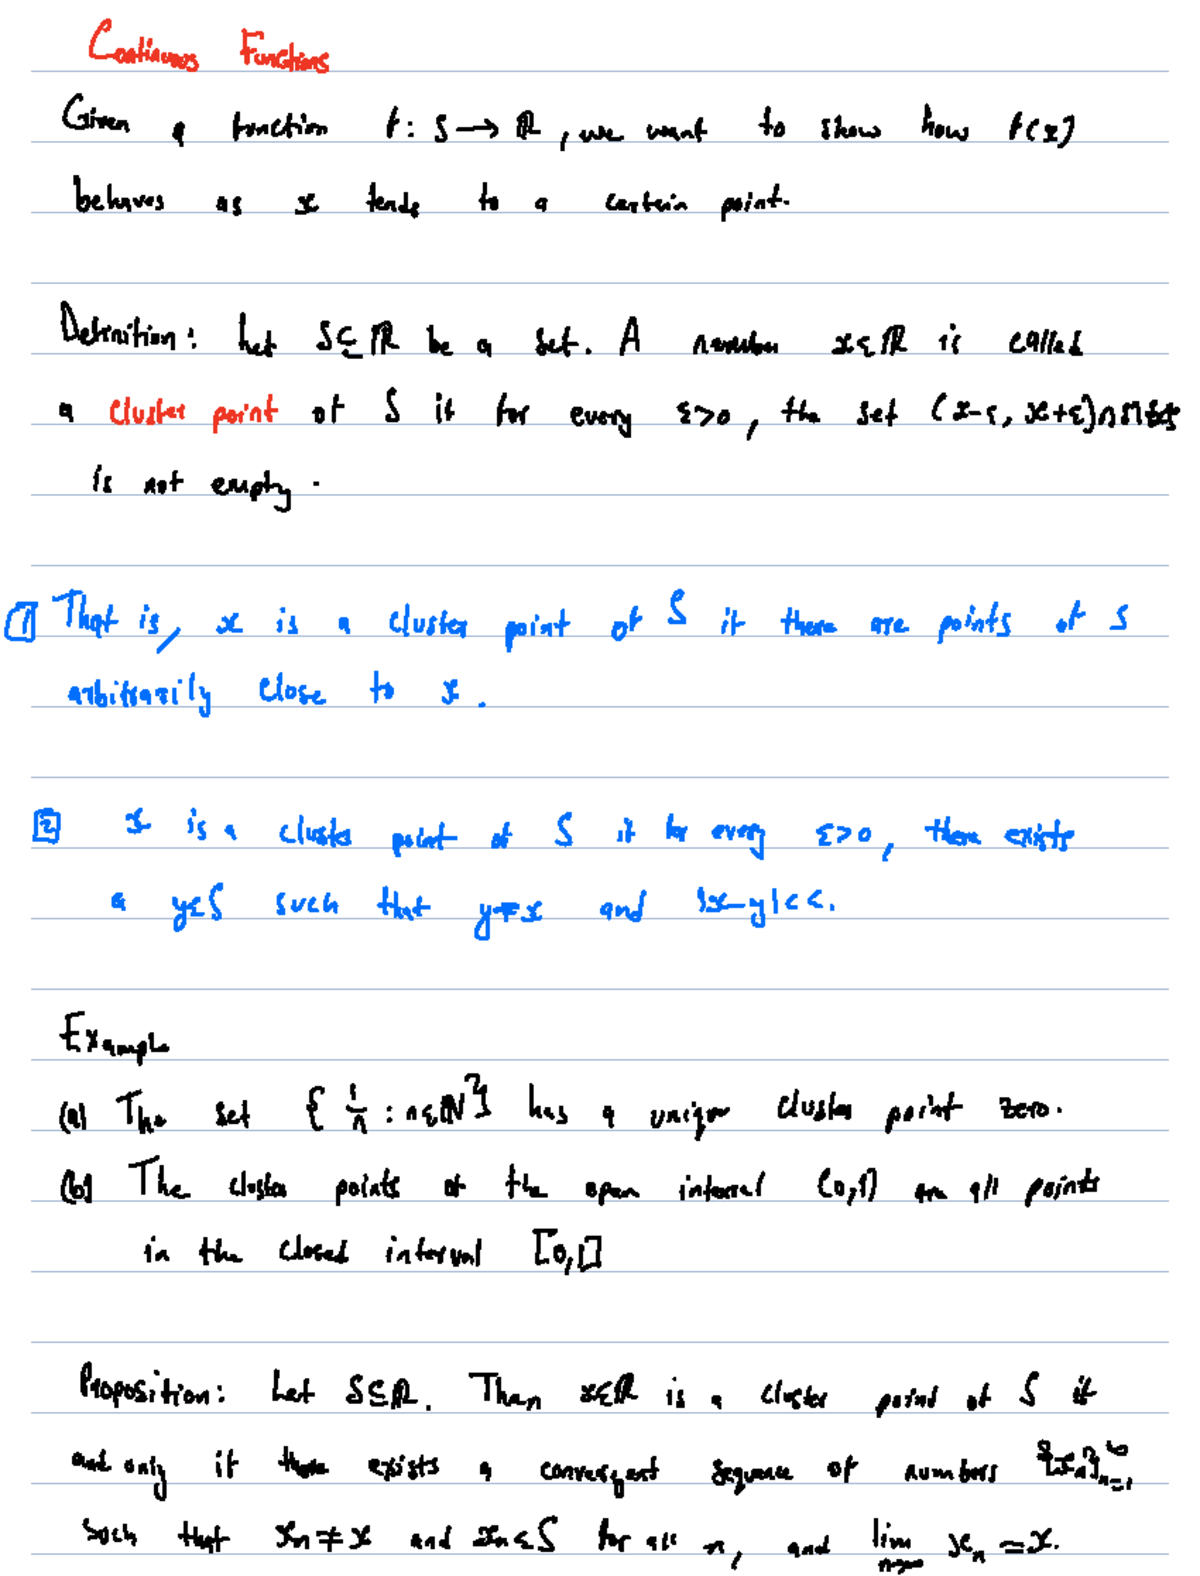 Continuous Functions
Given a function f: S → ℝ, we want to show how f(x)
behaves as x tends to a certain point.
Definition: Let S ⊆ ℝ be a set. A number x ∈ ℝ is called
a cluster point of S if for every ε>0, the set (x-ε, x+ε)∩S\{x}
is not empty.
1 That is, x is a cluster point of S if there are points of S
arbitrarily close to x.
2 x is a cluster point of S if for every ε>0, there exists
a y∈S such that y≠x and |x-y|<ε.
Example
(a) The set { 1/n : n∈ℕ} has a unique cluster point zero.
(b) The cluster points of the open interval (0,1) are all points
in the closed interval [0,1]
Proposition: Let S⊆ℝ. Then x∈ℝ is a cluster point of S if
and only if there exists a convergent sequence of numbers {xₙ}ₙ₌₁^∞
such that xₙ ≠ x and xₙ∈S for all n, and lim n→∞ xₙ = x.